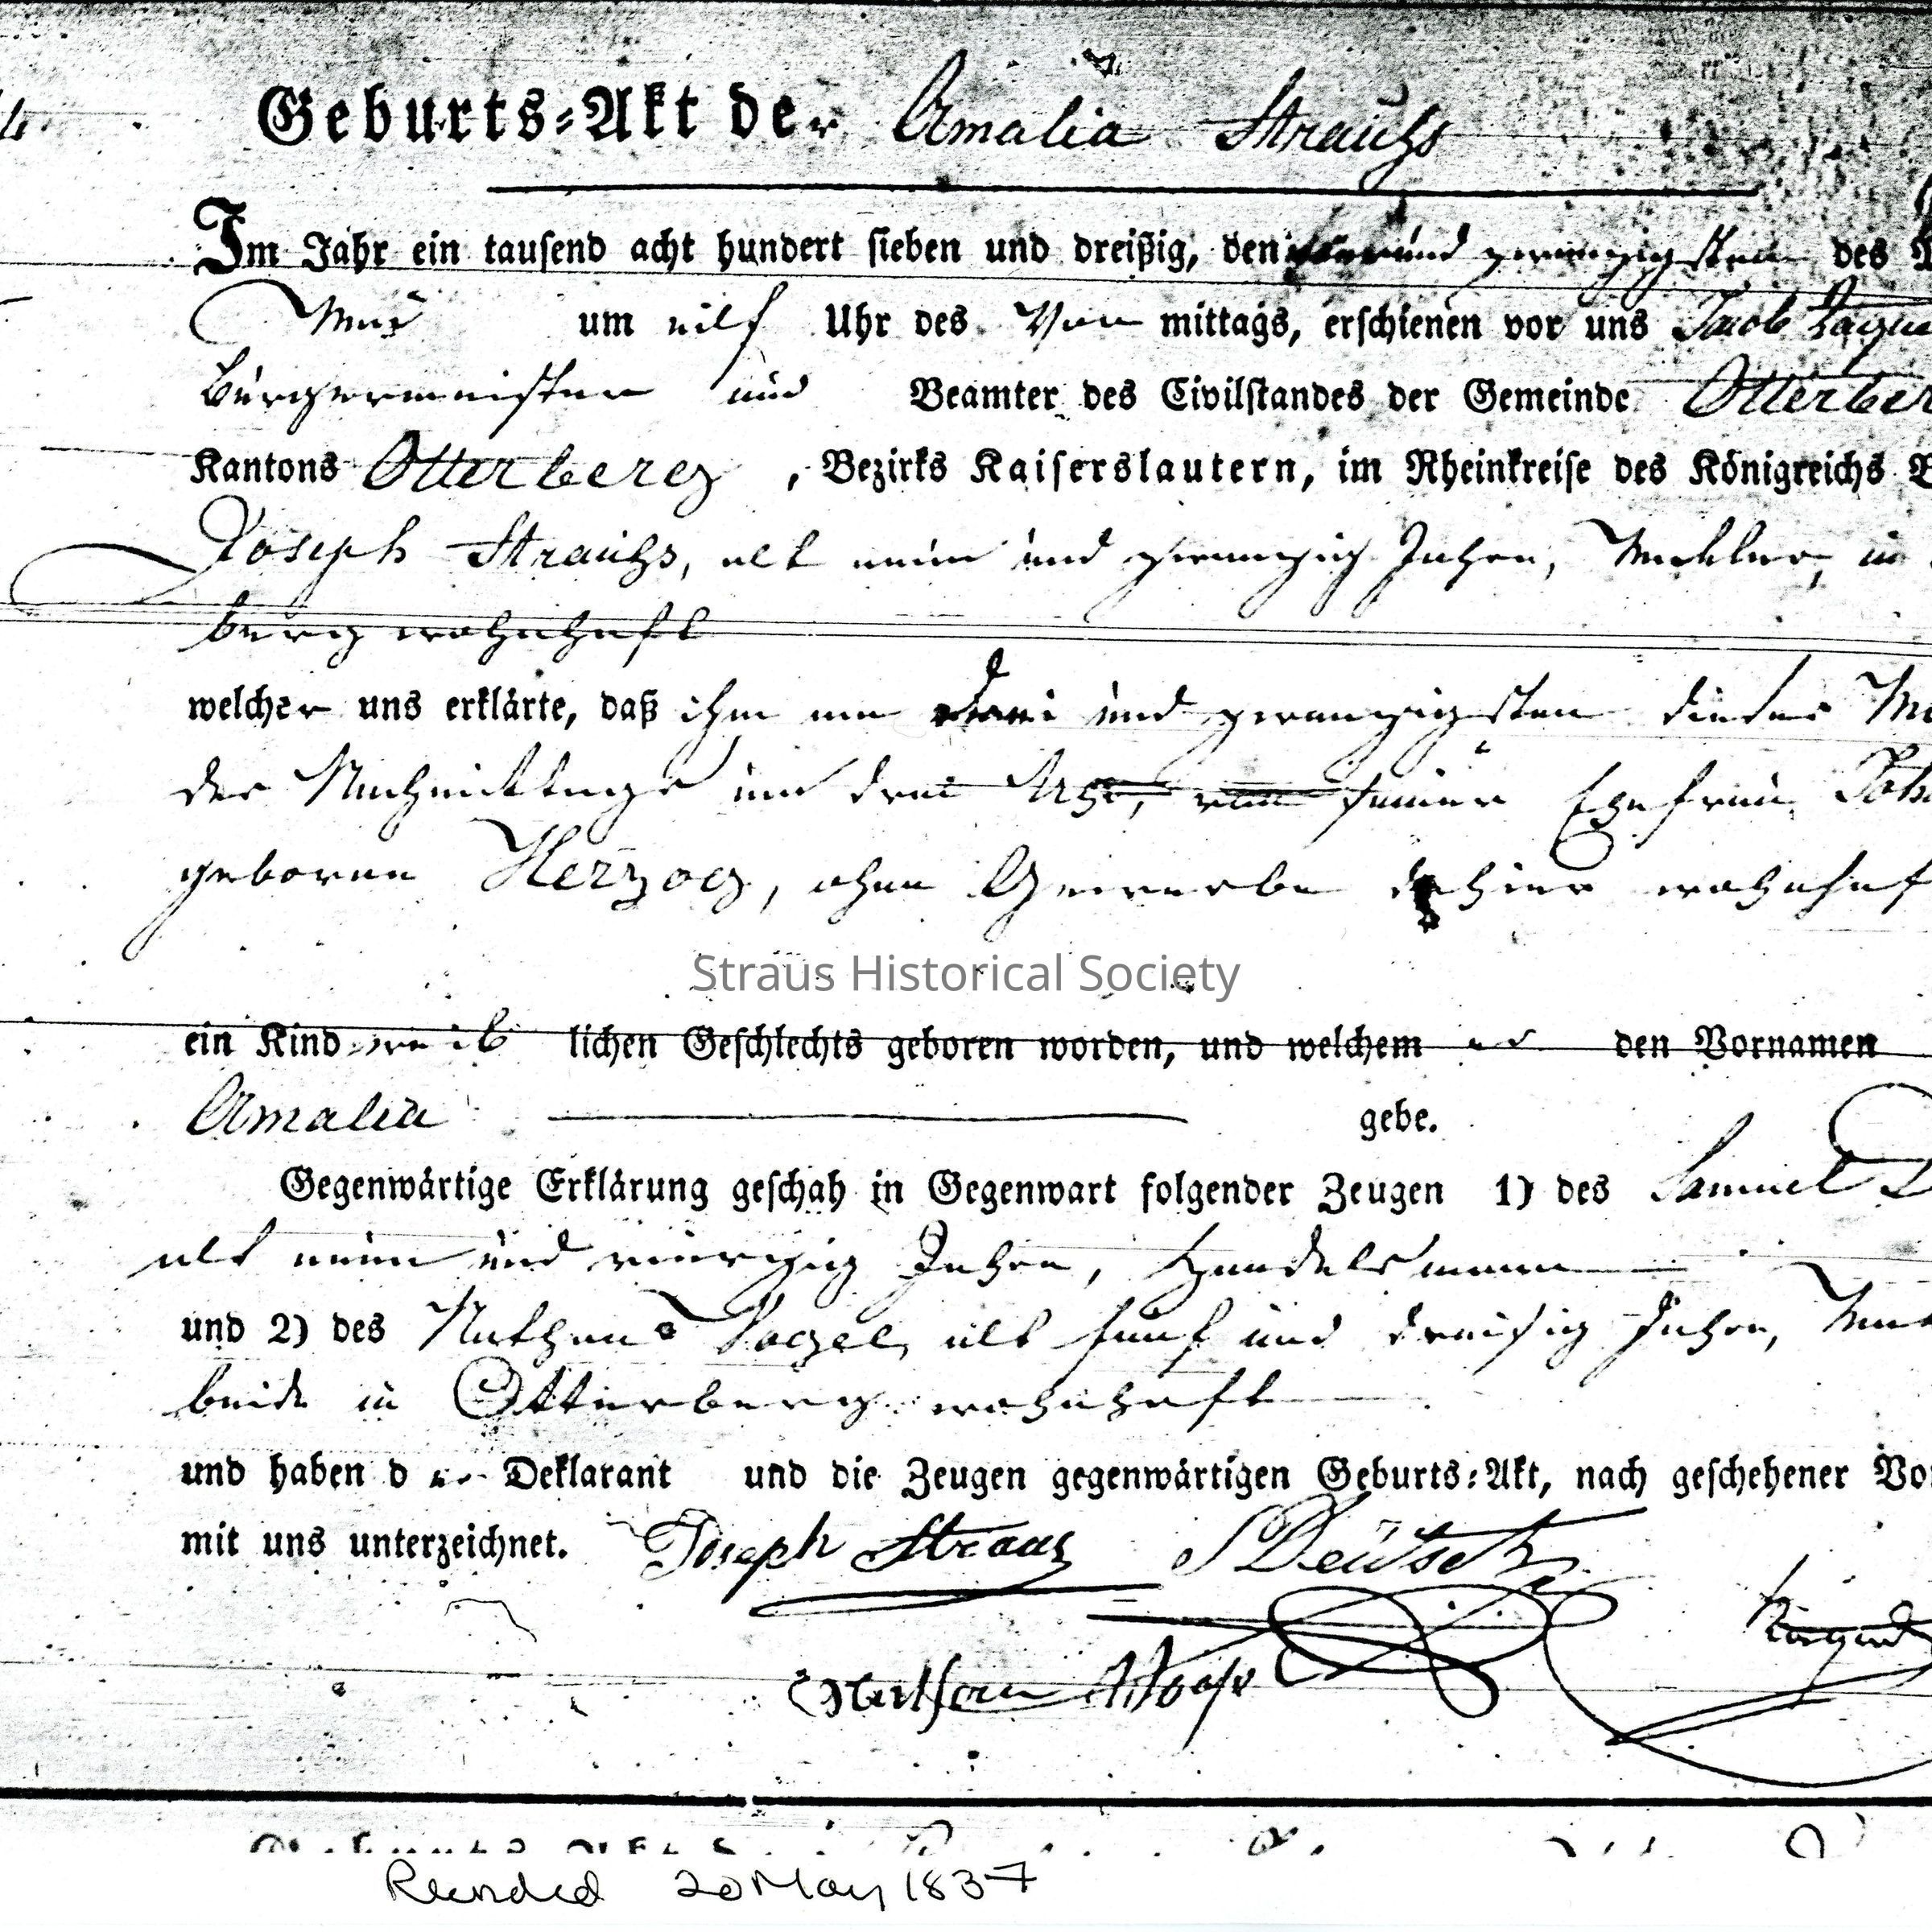 Geburts-Akt der Amalia Strauß
Im Jahr ein tausend acht hundert sieben und dreißig, den und zwanzigsten des
Mai um eilf Uhr des Vor mittags, erschienen vor uns Jacob
Bürgermeister und Beamter des Civilstandes der Gemeinde Otterber
Kantons Otterberg, Bezirks Kaiserslautern, im Rheinkreise des Königreichs B
Joseph Strauß, alt neun und zwanzig Jahre, Makler, in
berg wohnhaft
welcher uns erklärte, daß ihm am drei und zwanzigsten dieses M
des Nachmittags um drei Uhr, von seiner Ehefrau
geborene Herzog, ohne Gewerbe dahier wohnhaf
Straus Historical Society
ein Kind weib lichen Geschlechts geboren worden, und welchem er den Vornamen
Amalia gebe.
Gegenwärtige Erklärung geschah in Gegenwart folgender Zeugen 1) des Samuel D
alt neun und vierzig Jahre, Handelsmann
und 2) des Nathan Vogel, alt fünf und dreisig Jahre,
beide in Otterberg wohnhaft
und haben der Deklarant und die Zeugen gegenwärtigen Geburts-Akt, nach geschehener Vor
mit uns unterzeichnet. Joseph Straus S Deütsch
Recorded 20 May 1837